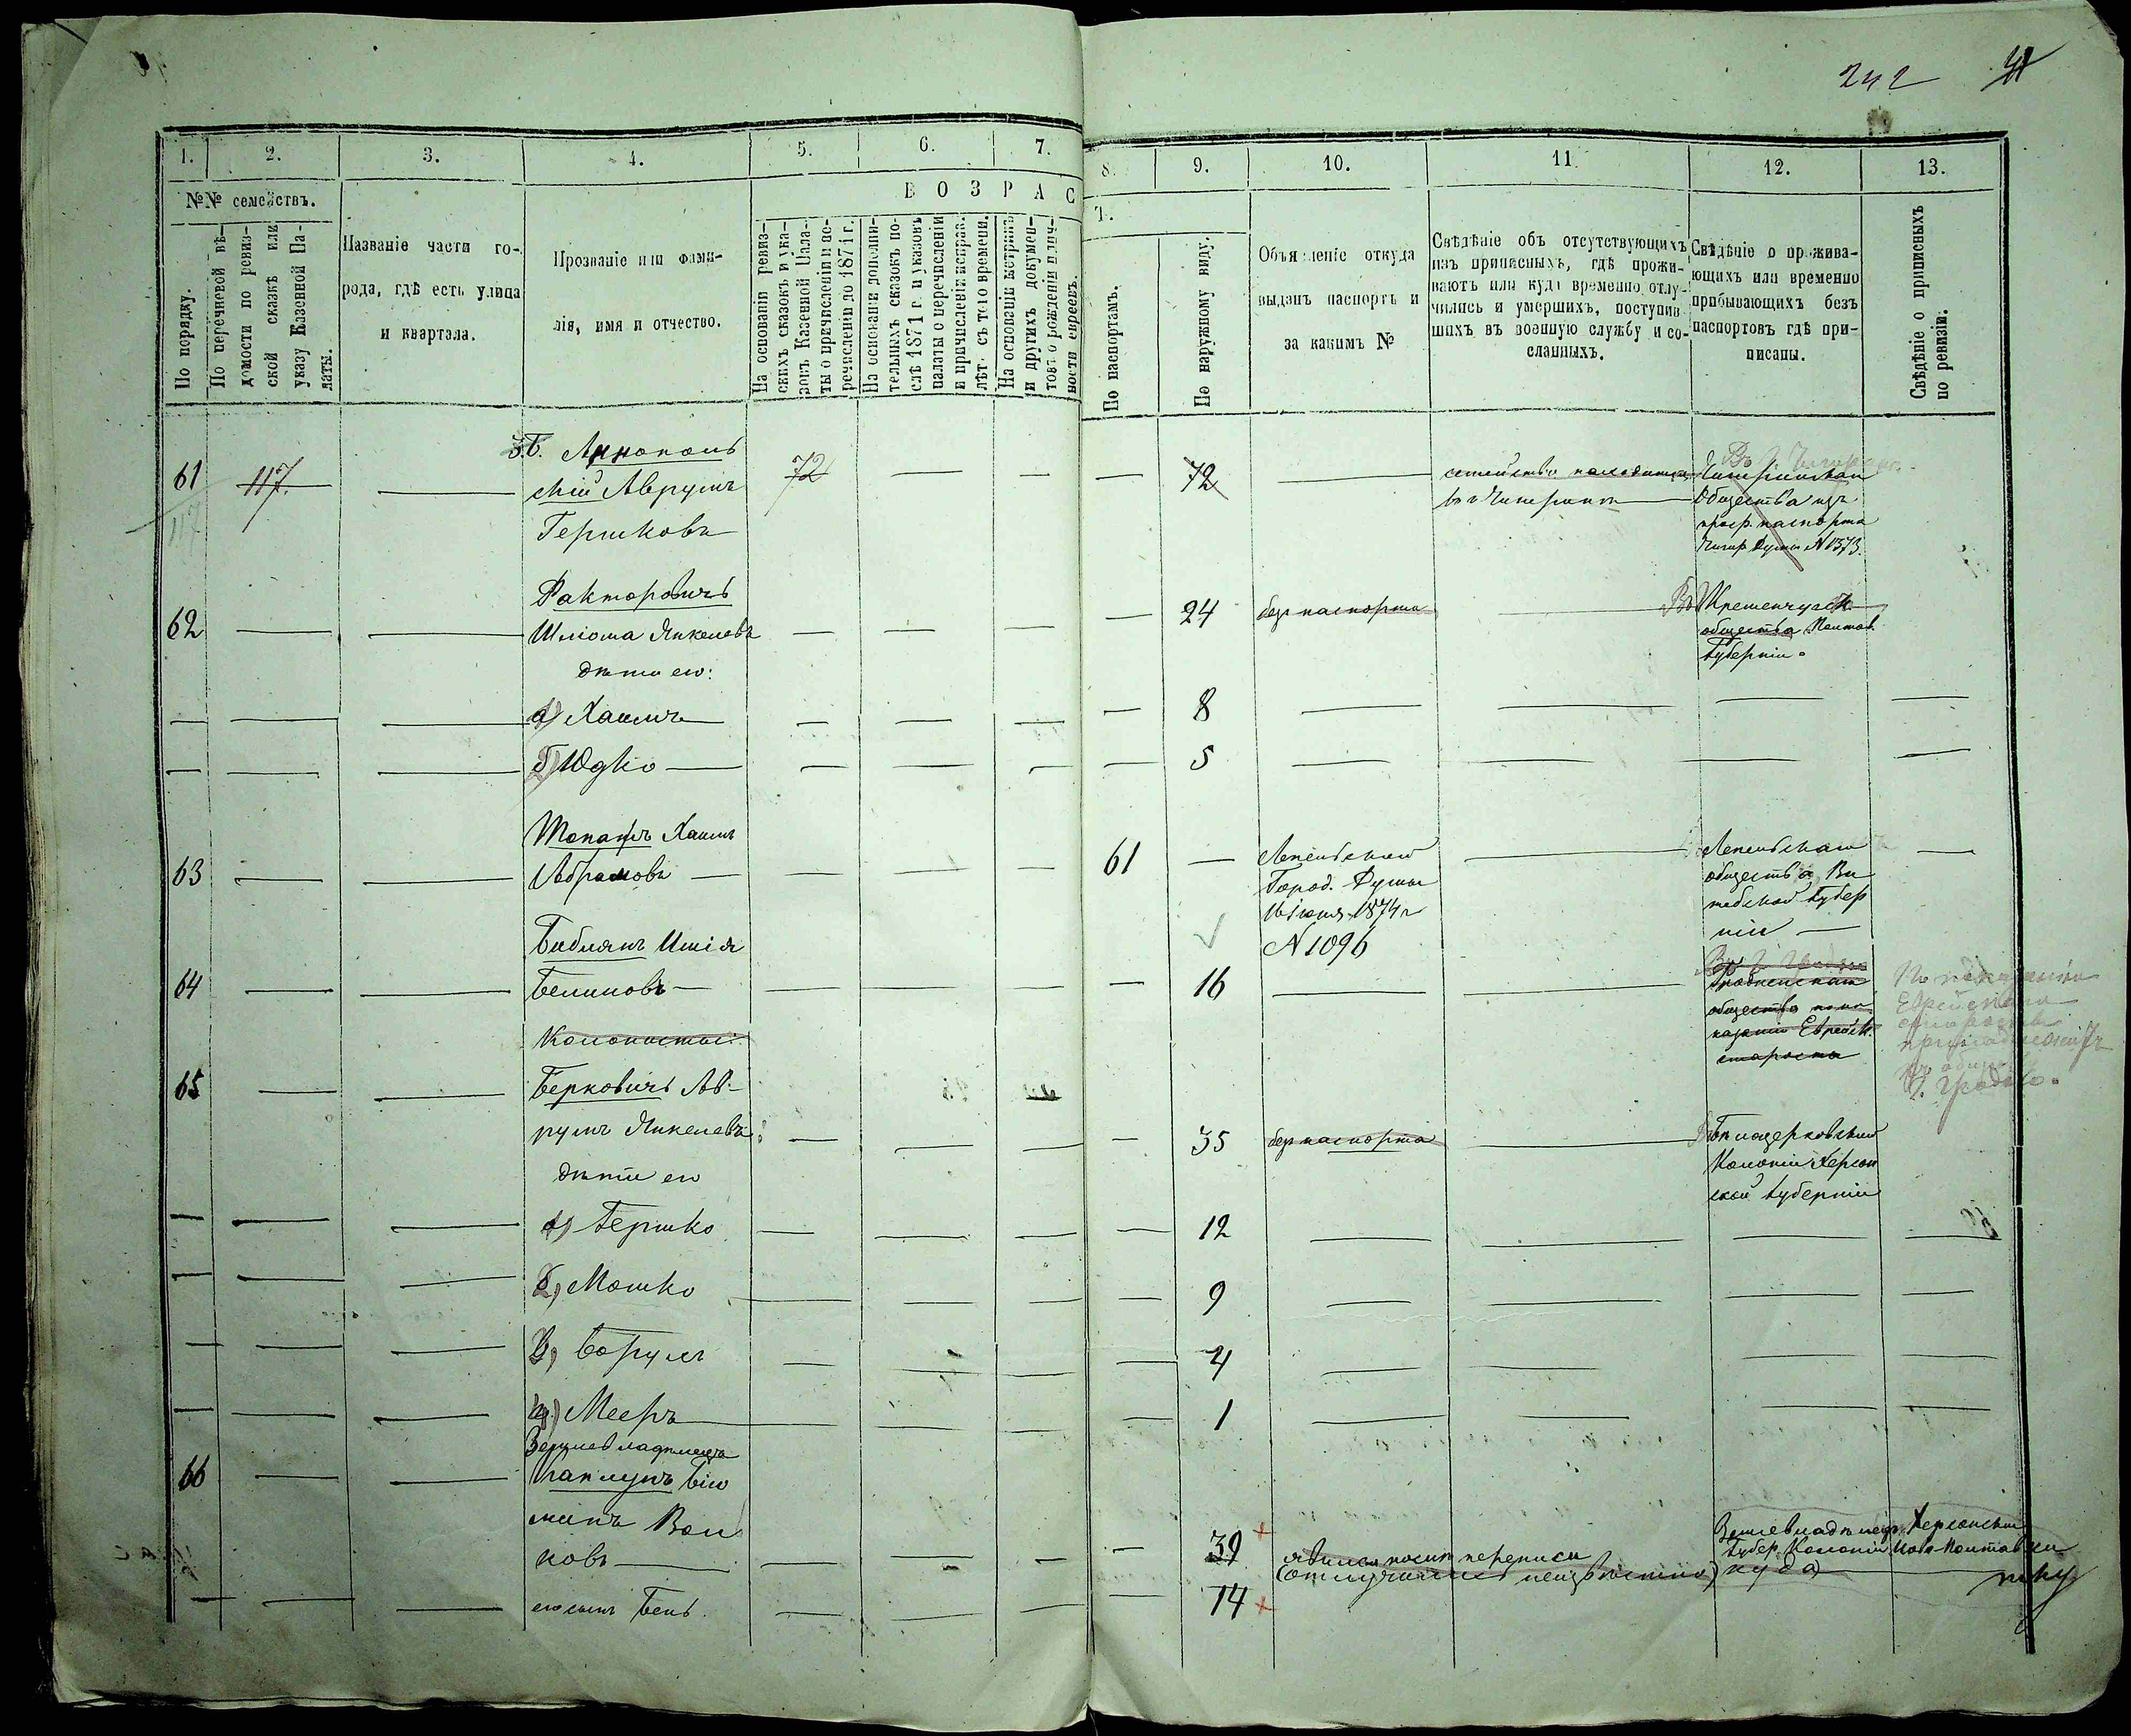 242
1.
2.
3.
4.
5.
6.
7.
8.
9.
10.
11.
12.
13.
№№ семействъ.
По порядку.
По перечневой вѣ-
домости по ревиз-
ской сказкѣ или
указу Казенной Па-
латы.
Названіе части го-
рода, гдѣ есть улица
и квартала.
Прозваніе или фами-
лія, имя и отчество.
ВОЗРАС
Т.
На основаніи ревиз-
скихъ сказокъ и ука-
зовъ Казенной Пала-
ты о причисленіи и пе-
речисленіи до 1871 г.
На основаніи дополни-
тельныхъ сказокъ по-
слѣ 1871 г. и указовъ
палаты о перечисленіи
и причисленіи исправ.
лѣтъ съ того времени.
На основаніи метрикъ
и другихъ докумен-
товъ о рожденіи и лич-
ности евреевъ.
По паспортамъ.
По наружному виду.
Объявленіе откуда
выданъ паспортъ и
за какимъ №
Свѣдѣніе объ отсутствующихъ
изъ приписныхъ, гдѣ прожи-
ваютъ или куда временно отлу-
чились и умершихъ, поступив
шихъ въ военную службу и со-
сланныхъ.
Свѣдѣніе о прожива-
ющихъ или временно
прибывающихъ безъ
паспортовъ гдѣ при-
писаны.
Свѣдѣніе о приписныхъ
по ревизіи.
61
117
117.
Аннополь
скій Аврумъ
Гершковъ
72
72
семейство находится
въ г Чигиринѣ
Чигиринскаго
Общества изъ
паспорта
Чигир. Думы № 1373.
62
Факторовичъ
Шліома Янкелевъ
дѣти его:
24
безъ паспорта
Кременчугск
общества Полтав.
Губерніи.
а) Хаимъ
8
б) Юдко
5
63
Хаимъ
Абрамовъ
61
Лепельской
Город. Думы
Іюня 1874 г
№ 1096
Лепельскаго
общества Ви
тебской Губер
ніи
64
Библянъ
16
Гродненскаго
общества по по
казанію Еврейск.
старосты
По показанію
Еврейскаго
старосты
принадлежитъ
г. Гродно.
Колонисты:
65
Берковичъ Ав-
румъ Янкелевъ:
дѣти его
35
безъ паспорта
Бѣлоцерковской
Колоніи Херсон
ской Губерніи
а) Гершко
12
б) Мошко
9
в) Борухъ
4
г) Мееръ
1
66
Землевладѣлецъ
Каплунъ Бін
минъ Вол
ковъ
39
явился послѣ переписи
(отлучился неизвѣстно куда)
Землевладѣлецъ Херсонской
Губер. Колоніи Ново-Полтавки
его сынъ Бень.
14